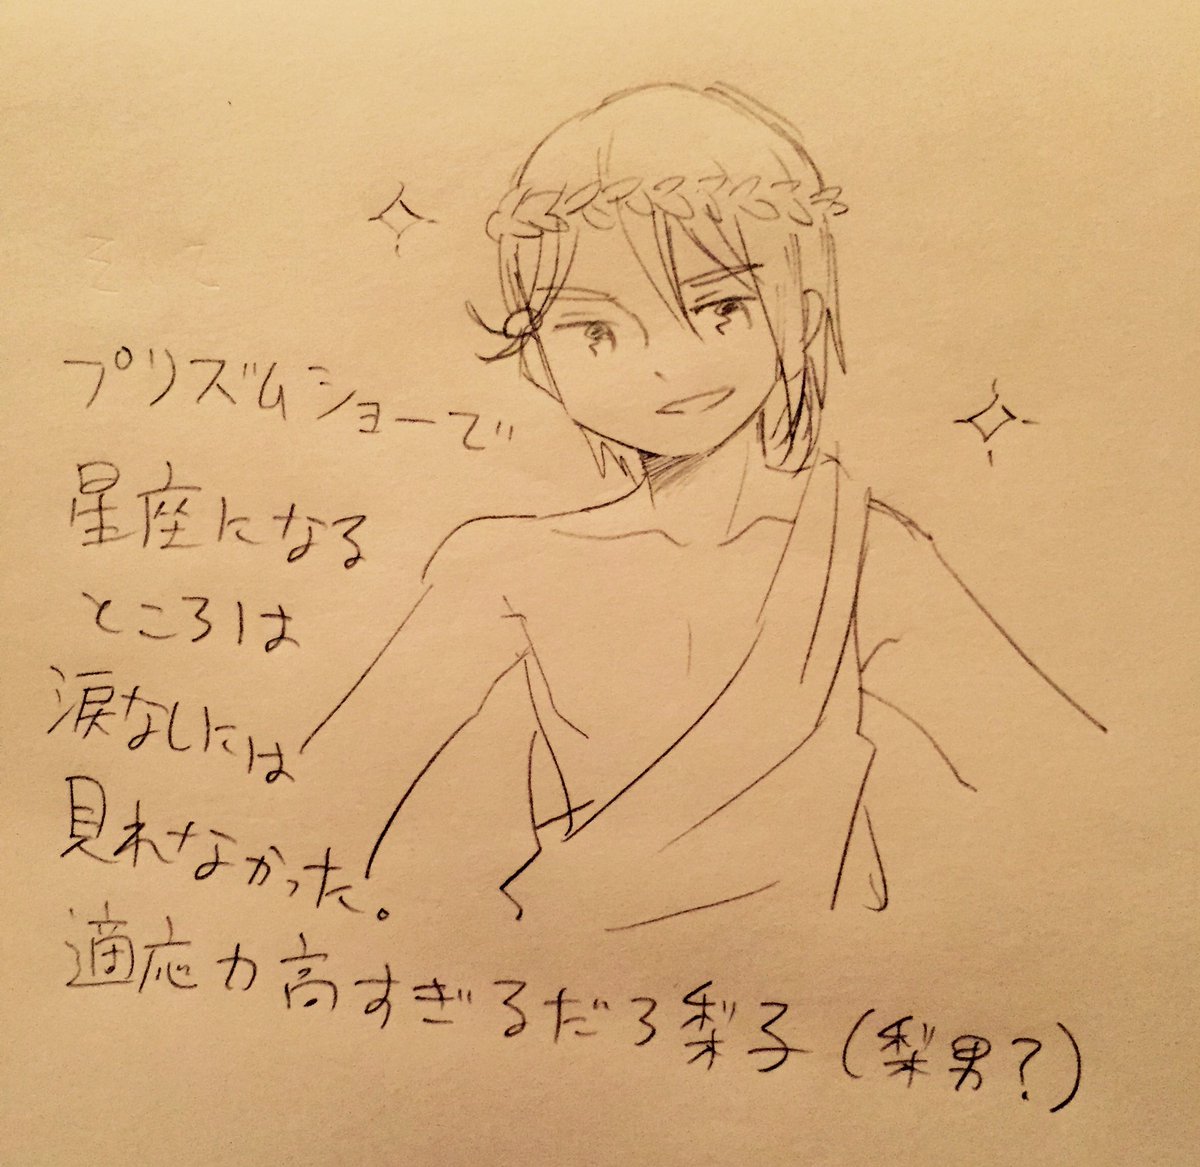 プリズムショーで
星座になる
ところは
涙なしには
見れなかった。
適応力高すぎるだろ梨子(梨男?)